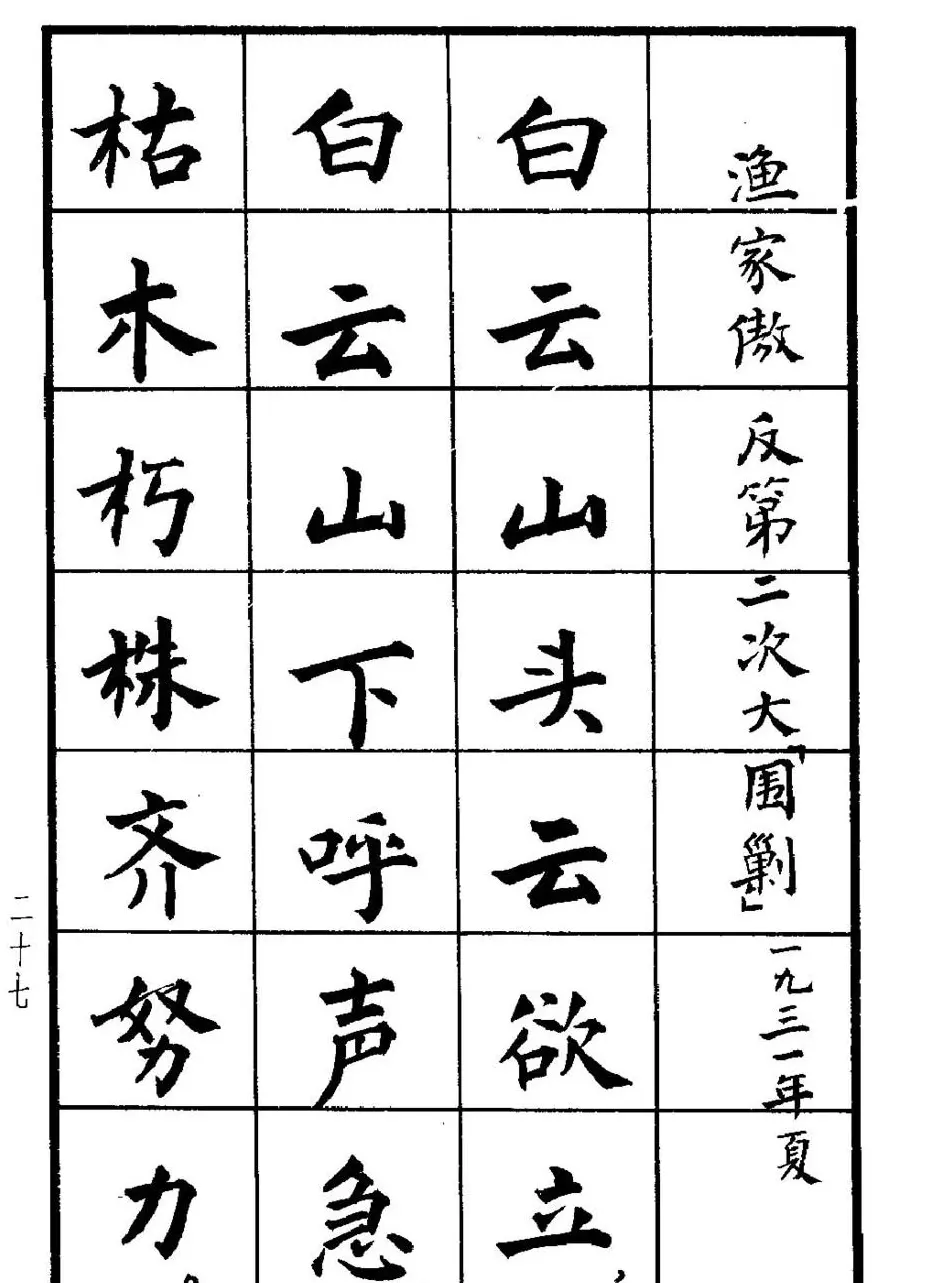 渔家傲 反第二次大「围剿」 一九三一年夏
白云山头云欲立，
白云山下呼声急
枯木朽株齐努力。
二十七